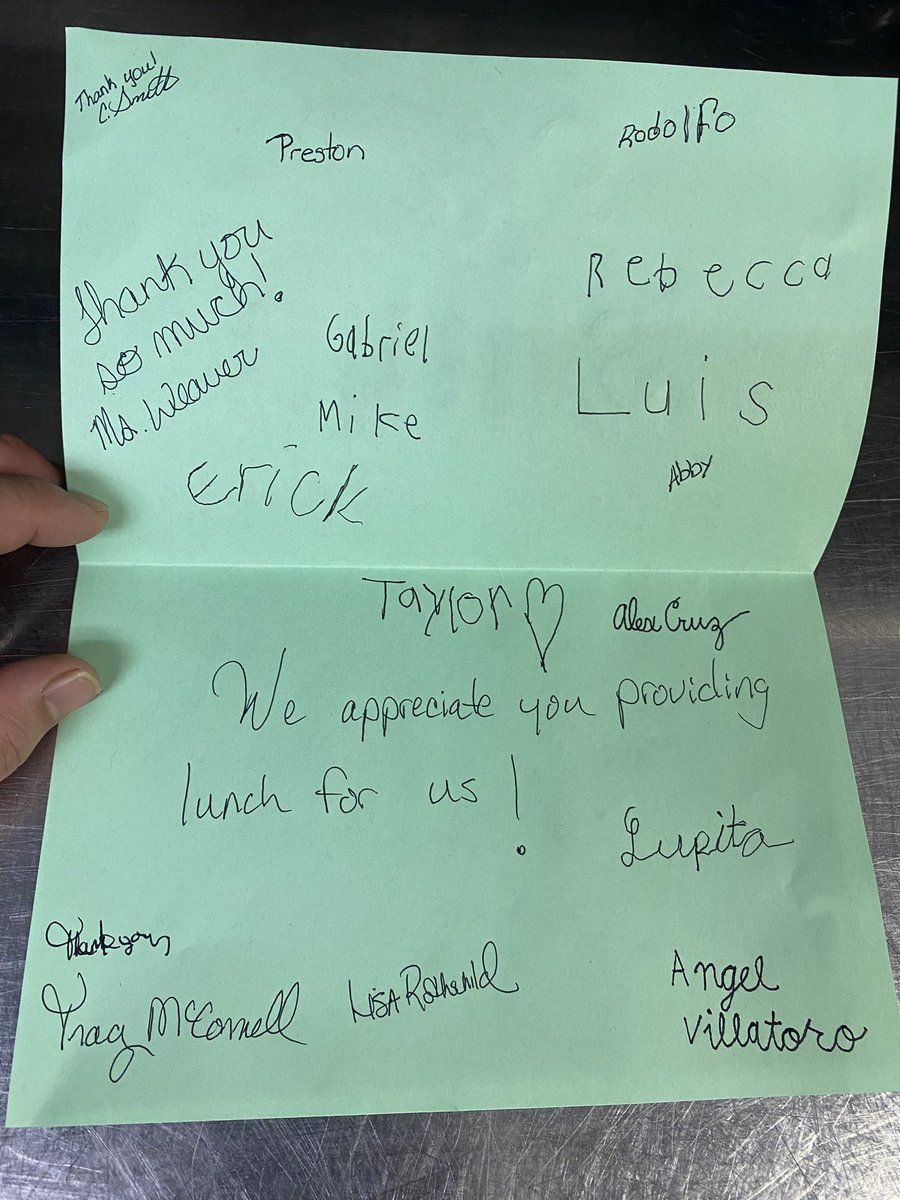 Thank you!
C. Smith
Preston
Rodolfo
Thank you
so much!
Ms. Weaver
Rebecca
Gabriel
Luis
Mike
Abby
Erick
Taylor
Alex Cruz
We appreciate you providing
lunch for us!
Lupita
Thank you,
Tracy McConnell
Lisa Rothschild
Angel
Villatoro